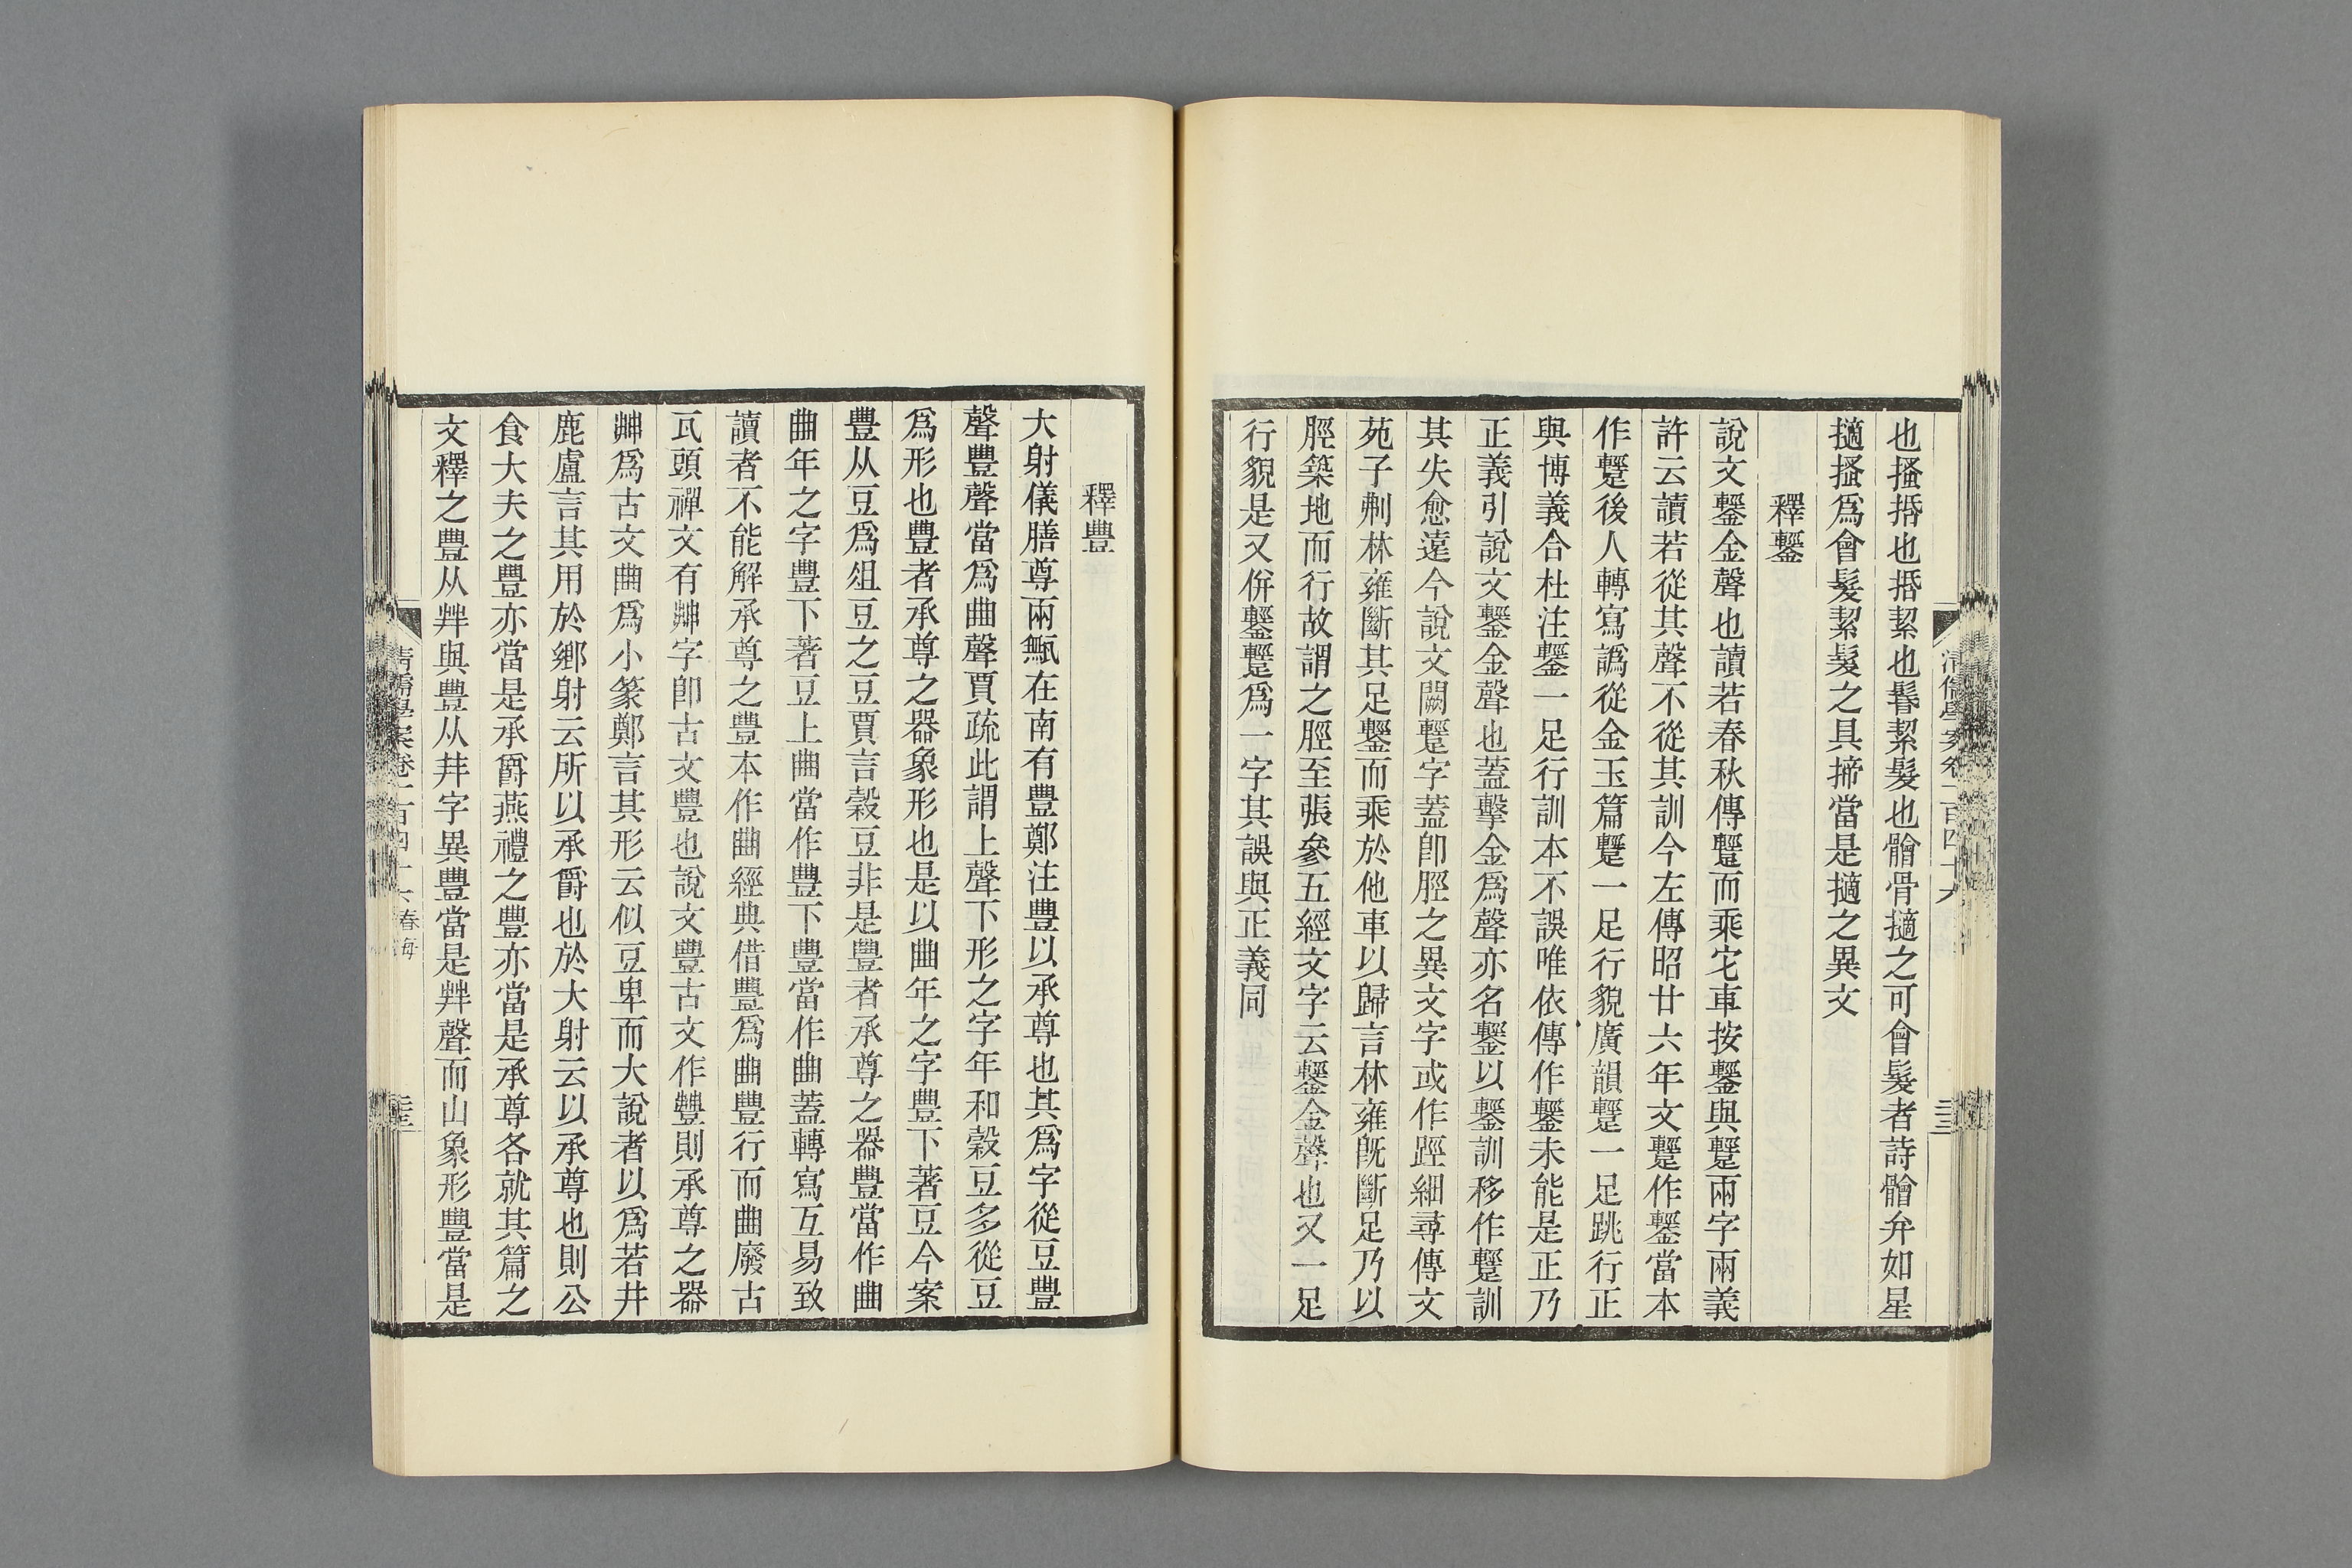 也搔捪也捪絜也鬠絜髮也體骨擿之可會髮者詩體弁如星
擿搔爲會髮絜髮之具揥當是擿之異文
釋鏧
說文鏧金聲也讀若春秋傳躗而乘它車按鏧與躗兩字兩義
許云讀若從其聲不從其訓今左傳昭廿六年文躗作鏧當本
作躗後人轉寫譌從金玉篇躗一足行貌廣韻躗一足跳行正
與博義合杜注鏧一足行訓本不誤唯依傳作鏧未能是正乃
正義引說文鏧金聲也蓋擊金爲聲亦名鏧以鏧訓移作躗訓
其失愈遠今說文闕躗字蓋卽脛之異文字或作踁細尋傳文
苑子剕林雍斷其足鏧而乘於他車以歸言林雍旣斷足乃以
脛築地而行故謂之脛至張參五經文字云鏧金聲也又一足
行貌是又倂鏧躗爲一字其誤與正義同
清儒學案卷一百四十六
三三
釋豐
大射儀膳尊兩甒在南有豐鄭注豐以承尊也其爲字從豆豐
聲豐聲當爲曲聲賈疏此謂上聲下形之字年和穀豆多從豆
爲形也豐者承尊之器象形也是以曲年之字豐下著豆今案
豐从豆爲俎豆之豆賈言穀豆非是豐者承尊之器豐當作曲
曲年之字豐下著豆上曲當作豐下豐當作曲蓋轉寫互易致
讀者不能解承尊之豐本作曲經典借豐爲曲豐行而曲廢古
瓦頭禪文有𠁳字卽古文豐也說文豐古文作豐則承尊之器
𠁳爲古文曲爲小篆鄭言其形云似豆卑而大說者以爲若井
鹿盧言其用於鄉射云所以承爵也於大射云以承尊也則公
食大夫之豐亦當是承爵燕禮之豐亦當是承尊各就其篇之
文釋之豐从𠦒與豐从井字異豐當是𠦒聲而山象形豐當是
清儒學案卷一百四十六
春海
三三